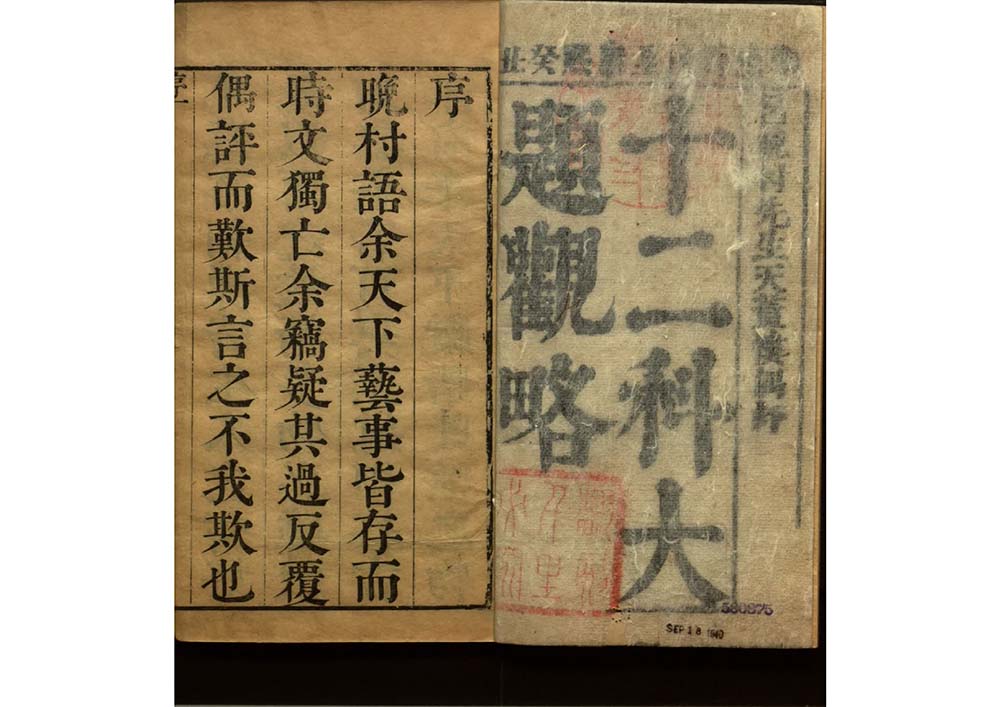 至康熙癸丑
呂晚村先生天蓋樓偶評
十二科大
題觀略
SEP 18 1940
序
晚村語余天下藝事皆存而
時文獨亡余竊疑其過反覆
偶評而歎斯言之不我欺也
序